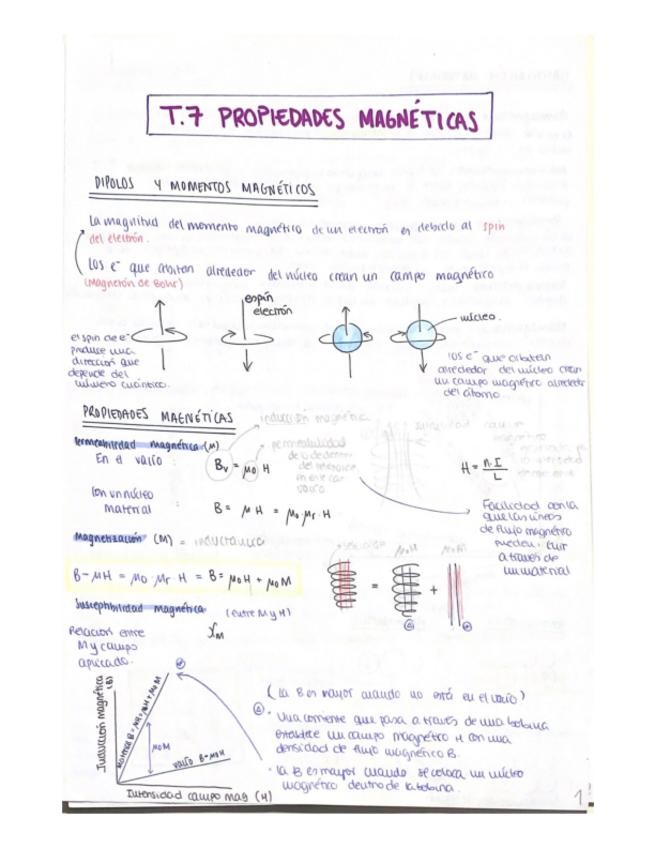 T.7 PROPIEDADES MAGNÉTICAS
DIPOLOS Y MOMENTOS MAGNÉTICOS
La magnitud del momento magnético de un electrón es debido al spin
del electrón.
Los e⁻ que orbitan alrededor del núcleo crean un campo magnético
(Magnetón de Bohr)
espín
electrón
núcleo.
el spin de e⁻
produce una
dirección que
depende del
número cuántico.
los e⁻ que orbitan
alrededor del núcleo crean
un campo magnético alrededor
del átomo
PROPIEDADES MAGNÉTICAS
inducción magnética
Permeabilidad magnética (μ)
En el vacío :
Bᵥ = μ₀ H
permeabilidad
vacío
H = n·I / L
Con un núcleo
material :
B = μ H = μ₀ · μr · H
Facilidad con la
que las líneas
de flujo magnético
pueden fluir
a través de
un material
Magnetización (M) = inductancia
B = μH = μ₀ · μr · H = B = μ₀H + μ₀M
μ₀H
μ₀M
= +
Susceptibilidad magnética (entre M y H)
χM
Relación entre
M y campo
aplicado.
Inducción magnética (B)
μ₀M
vacío B = μ₀H
Intensidad campo mag (H)
(la B es mayor cuando no está en el vacío)
· Una corriente que pasa a través de una bobina
establece un campo magnético H con una
densidad de flujo magnético B.
· la B es mayor cuando se coloca un núcleo
magnético dentro de la bobina.
1